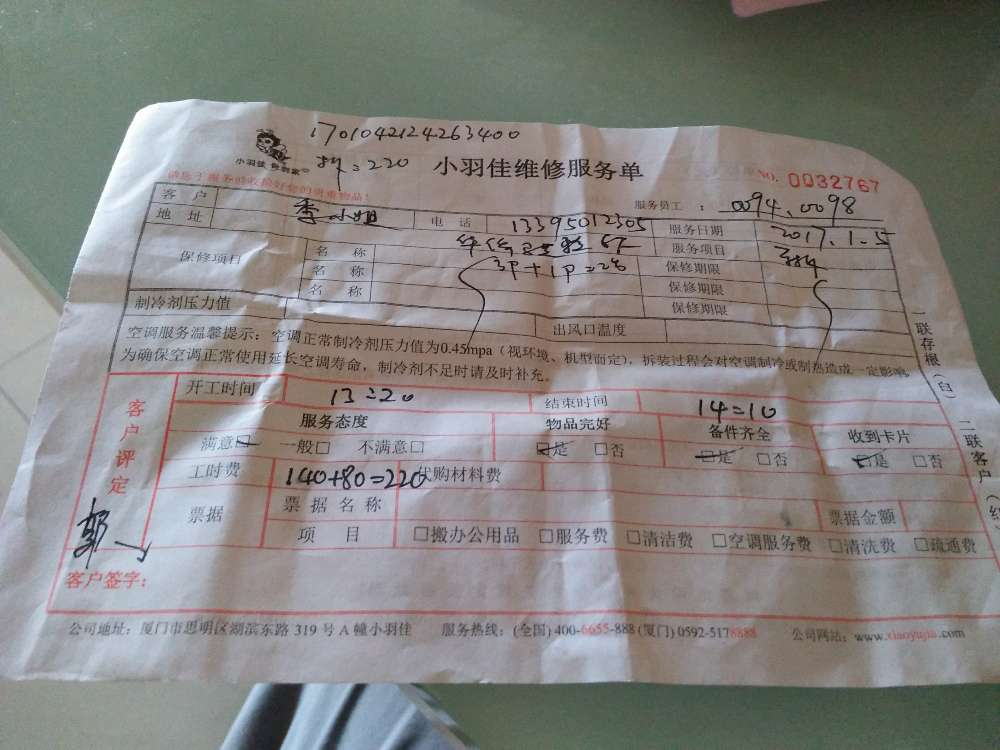 1701042124263400
小羽佳 = 220 小羽佳维修服务单 NO. 0032767
服务员工： 0094、0098
客户 李小姐 电话 13395012305 服务日期 2017.1.5
地址 服务项目
保修项目 名称 3P+1P=2台 保修期限
名称 保修期限
名称 保修期限
制冷剂压力值 出风口温度
空调服务温馨提示：空调正常制冷剂压力值为0.45mpa（视环境、机型而定），拆装过程会对空调制冷或制热造成一定影响
为确保空调正常使用延长空调寿命，制冷剂不足时请及时补充。
客户评定
开工时间 13=20 结束时间 14=10
服务态度 物品完好 备件齐全 收到卡片
满意☑ 一般□ 不满意□ ☑是 □否 ☑是 □否 ☑是 □否
工时费 140+80=220 代购材料费
票据 票据名称 票据金额
项目 □搬办公用品 □服务费 □清洁费 □空调服务费 □清洗费 □疏通费
客户签字：
公司地址：厦门市思明区湖滨东路 319 号 A 幢小羽佳 服务热线：(全国) 400-6655-888 (厦门) 0592-5178888 公司网站：www.xiaoyujia.com
一联存根（白）
二联客户